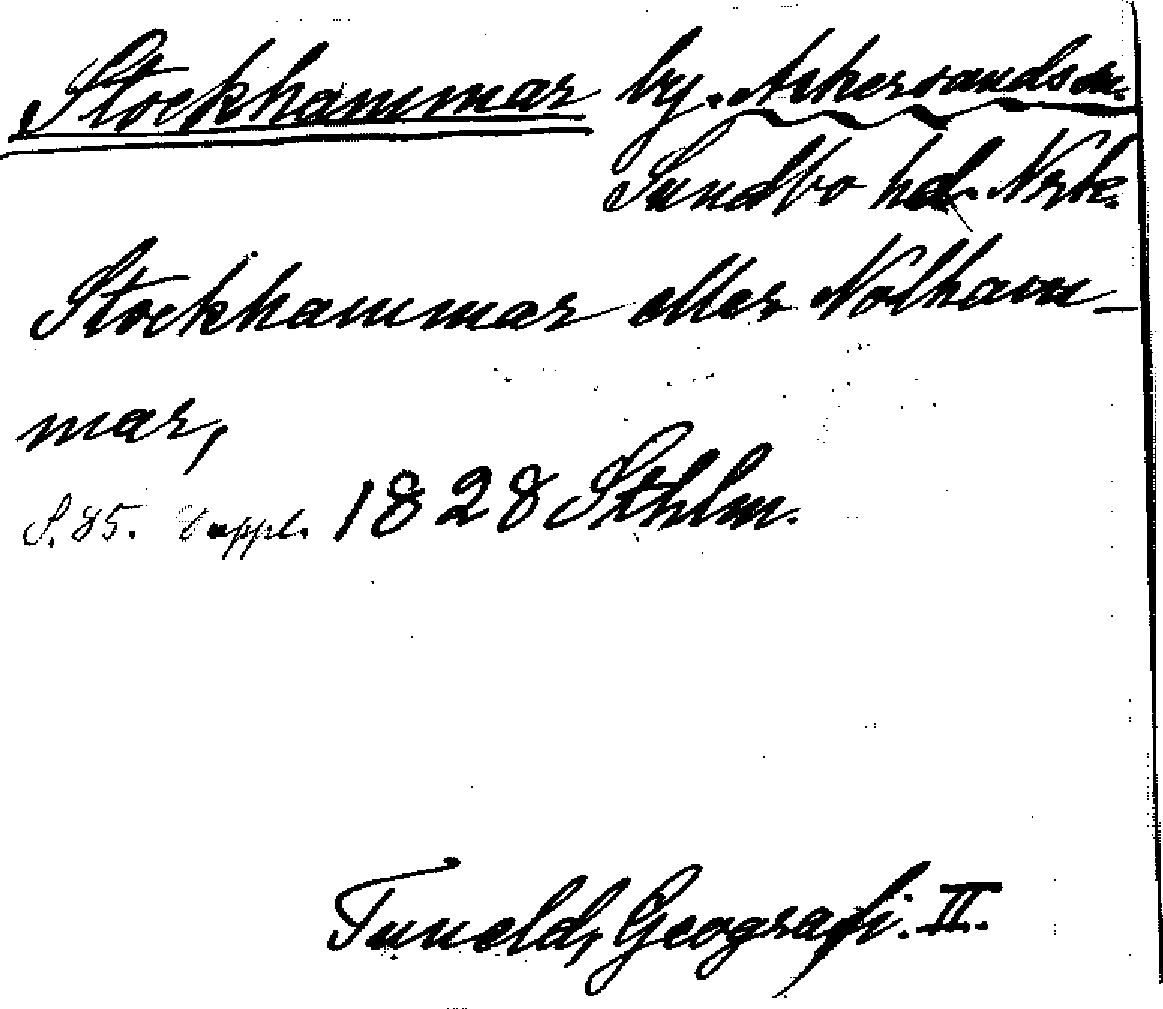 Stockhammar by. Askersunds sn.
Sundbo hd. Nrk.
Stockhammar eller Nolham-
mar,
S. 85. Suppl. 1828 Sthlm.
Tuneld, Geografi. II.